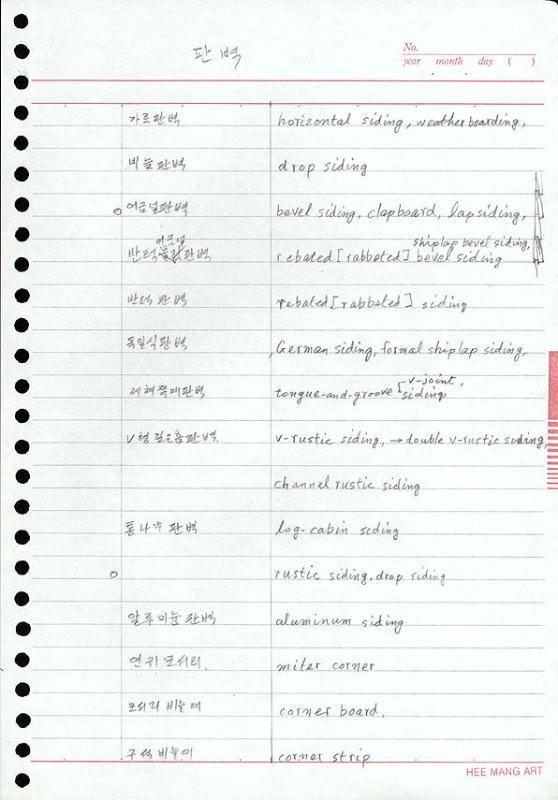 판벽
No.
year month day ( )
가로판벽 horizontal siding, weatherboarding,
비늘판벽 drop siding
어금널판벽 bevel siding, clapboard, lapsiding,
어금널 shiplap bevel siding,
반턱 판벽 rebated [rabbeted] bevel siding
반턱 판벽 rebated [rabbeted] siding
독일식판벽 German siding, formal shiplap siding,
v-joint,
제혀쪽매판벽 tongue-and-groove siding
V형 깊은홈판벽 v-rustic siding, → double v-rustic siding,
channel rustic siding
통나무 판벽 log-cabin siding
rustic siding, drop siding
알루미늄 판벽 aluminum siding
연귀 모서리. miter corner
모서리 비늘대 corner board.
구석 비늘대 corner strip
HEE MANG ART